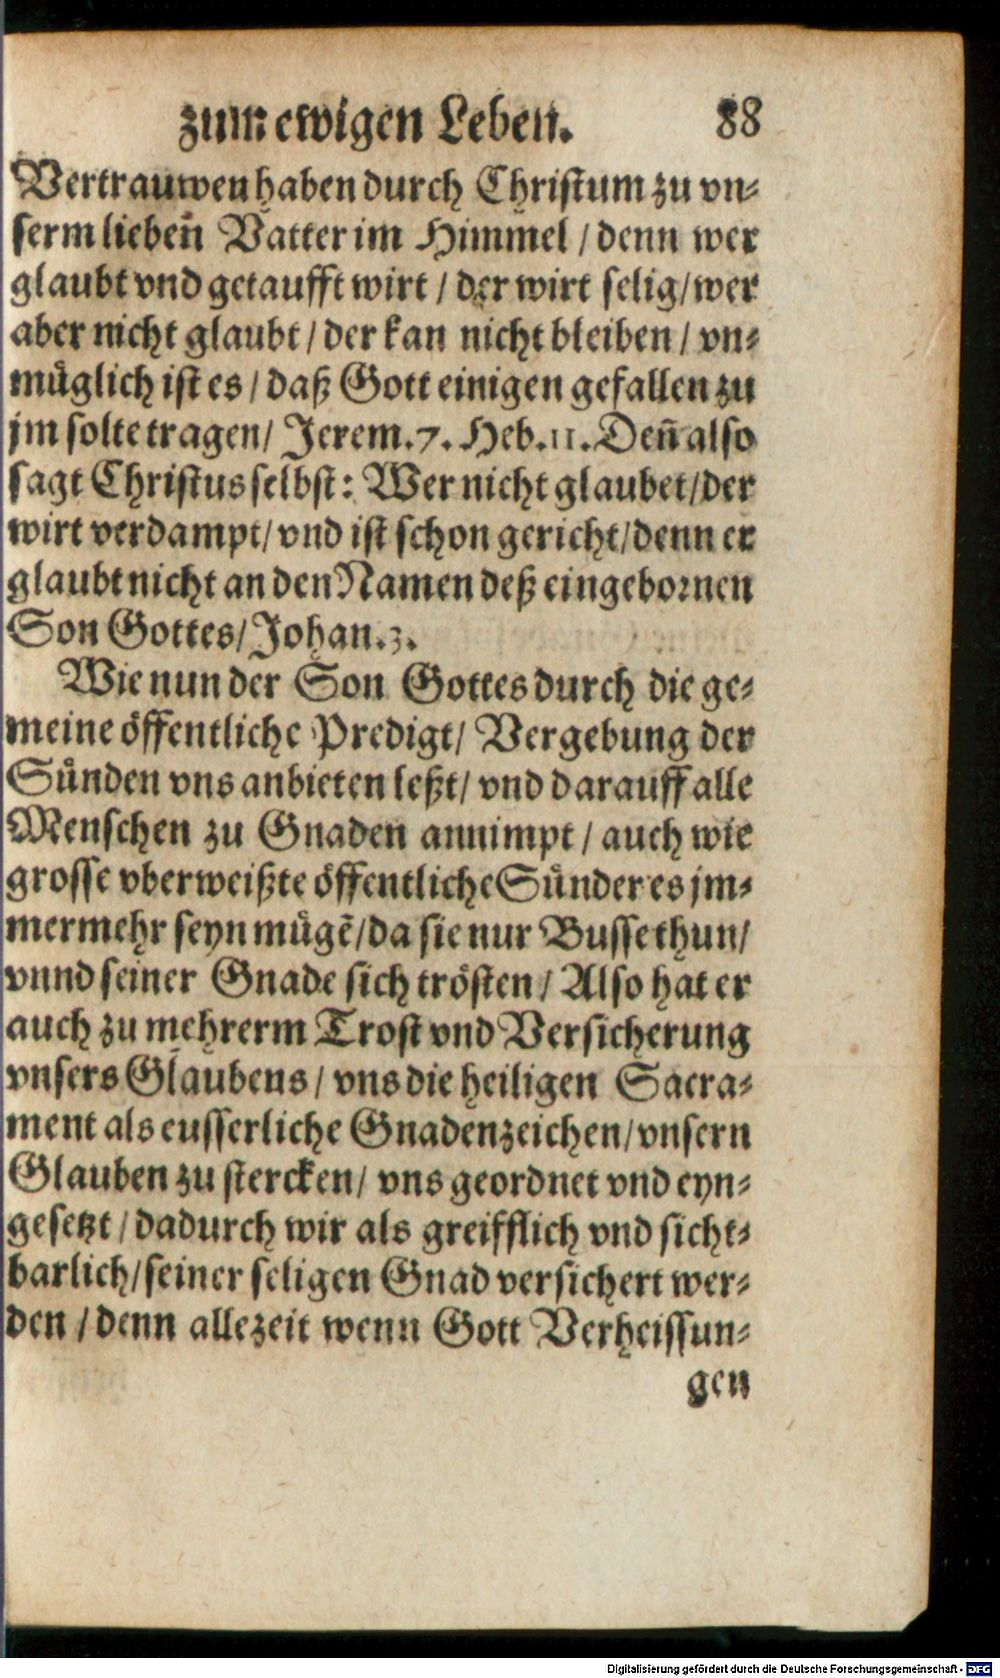 zum ewigen Leben. 88
Vertrauwen haben durch Christum zu vn-
serm liebeñ Vatter im Himmel / denn wer
glaubt vnd getaufft wirt / der wirt selig / wer
aber nicht glaubt / der kan nicht bleiben / vn-
müglich ist es / daß Gott einigen gefallen zu
jm solte tragen / Jerem. 7. Heb. 11. Deñ also
sagt Christus selbst: Wer nicht glaubet / der
wirt verdampt / vnd ist schon gericht / denn er
glaubt nicht an den Namen deß eingebornen
Son Gottes / Johan. 3.
Wie nun der Son Gottes durch die ge-
meine öffentliche Predigt / Vergebung der
Sünden vns anbieten leßt / vnd darauff alle
Menschen zu Gnaden annimpt / auch wie
grosse vberweißte öffentliche Sünder es jm-
mermehr seyn mügẽ / da sie nur Busse thun /
vnnd seiner Gnade sich trösten / Also hat er
auch zu mehrerm Trost vnd Versicherung
vnsers Glaubens / vns die heiligen Sacra-
ment als eusserliche Gnadenzeichen / vnsern
Glauben zu stercken / vns geordnet vnd eyn-
gesetzt / dadurch wir als greifflich vnd sicht-
barlich / seiner seligen Gnad versichert wer-
den / denn allezeit wenn Gott Verheissun-
gen
Digitalisierung gefördert durch die Deutsche Forschungsgemeinschaft - DFG